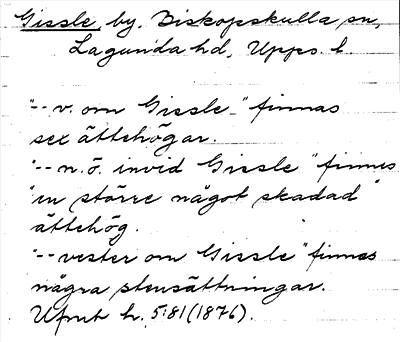 Gissle, by. Biskopskulla sn,
Lagunda hd, Upps. l.
"-- v. om Gissle -" finnas
sex ättehögar.
"-- n. ö. invid Gissle" finnes
"en större något skadad"
ättehög.
"-- vester om Gissle" finnas
några stensättningar.
Ufmt h. 5:81 (1876).